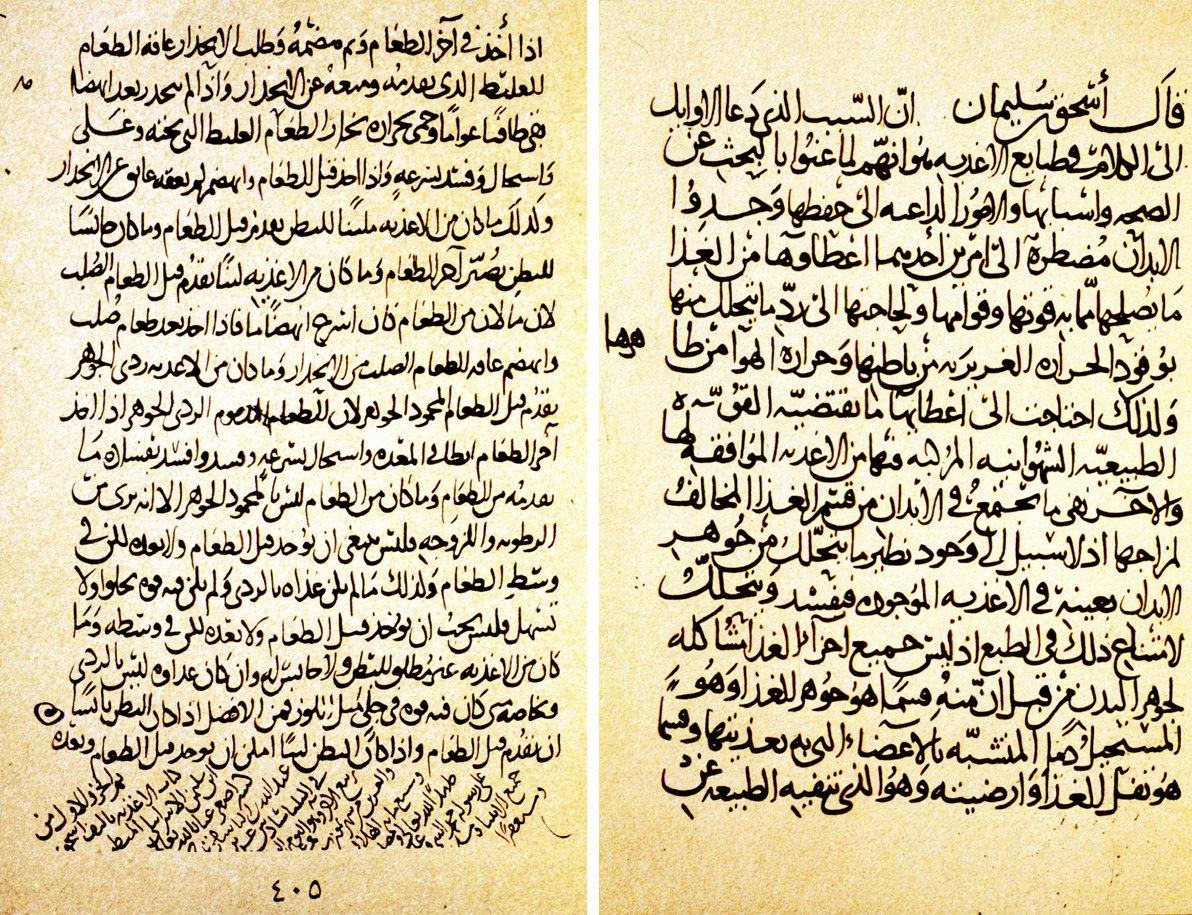 قال أسحق بن سليمان ان السبب الذى دعا الاوايل
الى الكلام فى طبايع الاغذيه هو انهم لما عنوا بالبحث عن
الصحه واسبابها والامور الداعيه الى حفظها وجدوا
الابدان مضطرة الى امرين أحديهما اعطاوها من الغذا
ما يصلحها مما به قوتها وقوامها ولحاجتها الى ردّ ما يتحلل منها
بوقود الحراره الغريزيه من باطنها وحراره الهوا من ظا
هرها
ولذلك احتاجت الى اعطايها ما تقتضيه القوّه
الطبيعيّه الشهوانيه المركبه فيها من الاغذيه الموافقة لها
والاخر نفى ما يجتمع فى الابدان من قسم الغذا المخالف
لمزاجها اذ لا سبيل الى وجود نظير ما يتحلّل من جوهر
الابدان بعينه فى الاغذيه الموجوده فيفسد ويتحلل
لامتناع ذلك فى الطبع اذ ليس جميع اجزاء الغذا مشاكله
لجوهر البدن من قبل انّ منه قسما هو جوهر للغذا وهو
المستحيل المتشبّه بالاعضاء التى به تغذيتها وقسما
هو ثفل للغذا وارضيته وهو الذى تنفيه الطبيعه عن
اذا أخذ فى آخر الطعام وتم هضمه وطلب الانحدار عاقه الطعام
الغليظ الذى تقدمه ومنعه عن الانحدار واذا لم ينحدر بعد انهضا
مه
بقى طافيا عواما وحمى بحرارة بخار الطعام الغليظ التى تحته وغلى
فاستحال وفسد بسرعه واذا اخذ قبل الطعام وانهضم لم يعقه عايق عن الانحدار
ولذلك ما كان من الاغذيه ملينا للبطن يقدم قبل الطعام وما كان حابسا
للبطن يصيّر آخر الطعام وما كان من الاغذيه لينا يقدم قبل الطعام الصلب
لان ما لان من الطعام كان اسرع انهضاما فاذا اخذ بعد طعام صلب
وانهضم عاقه الطعام الصلب من الانحدار وما كان من الاغذيه ردى الجوهر
يقدم قبل الطعام المحمود الجوهر لان الطعام المذموم الردى الجوهر اذا اخذ
آخر الطعام ابطا فى المعده واستحال بسرعه وفسد وافسد بفساده ما
تقدمه من الطعام وما كان من الطعام ليس بالمحمود الجوهر الا انه برى من
الرطوبه واللزوجه فليس ينبغى ان يوخذ قبل الطعام ولا بعده لكن فى
وسط الطعام ولذلك ما لم يكن غذاه بالردى ولم يكن فيه قوه تجلوا ولا
تسهل فليس يجب ان يوخذ قبل الطعام ولا بعده لكن فى وسطه وما
كان من الاغذيه غير مطلق للبطن ولا حابس له وان كان غذاوه ليس بالردى
وخاصه ان كان فيه قوه فى جلى قليل فمن الافضل اذا كان البطن يابسا
ان يقدم قبل الطعام واذا كان البطن لينا امكن ان يوخذ قبل الطعام وبعده
تم الجزو الاول من
كتاب الاغذيه
٤٠٥